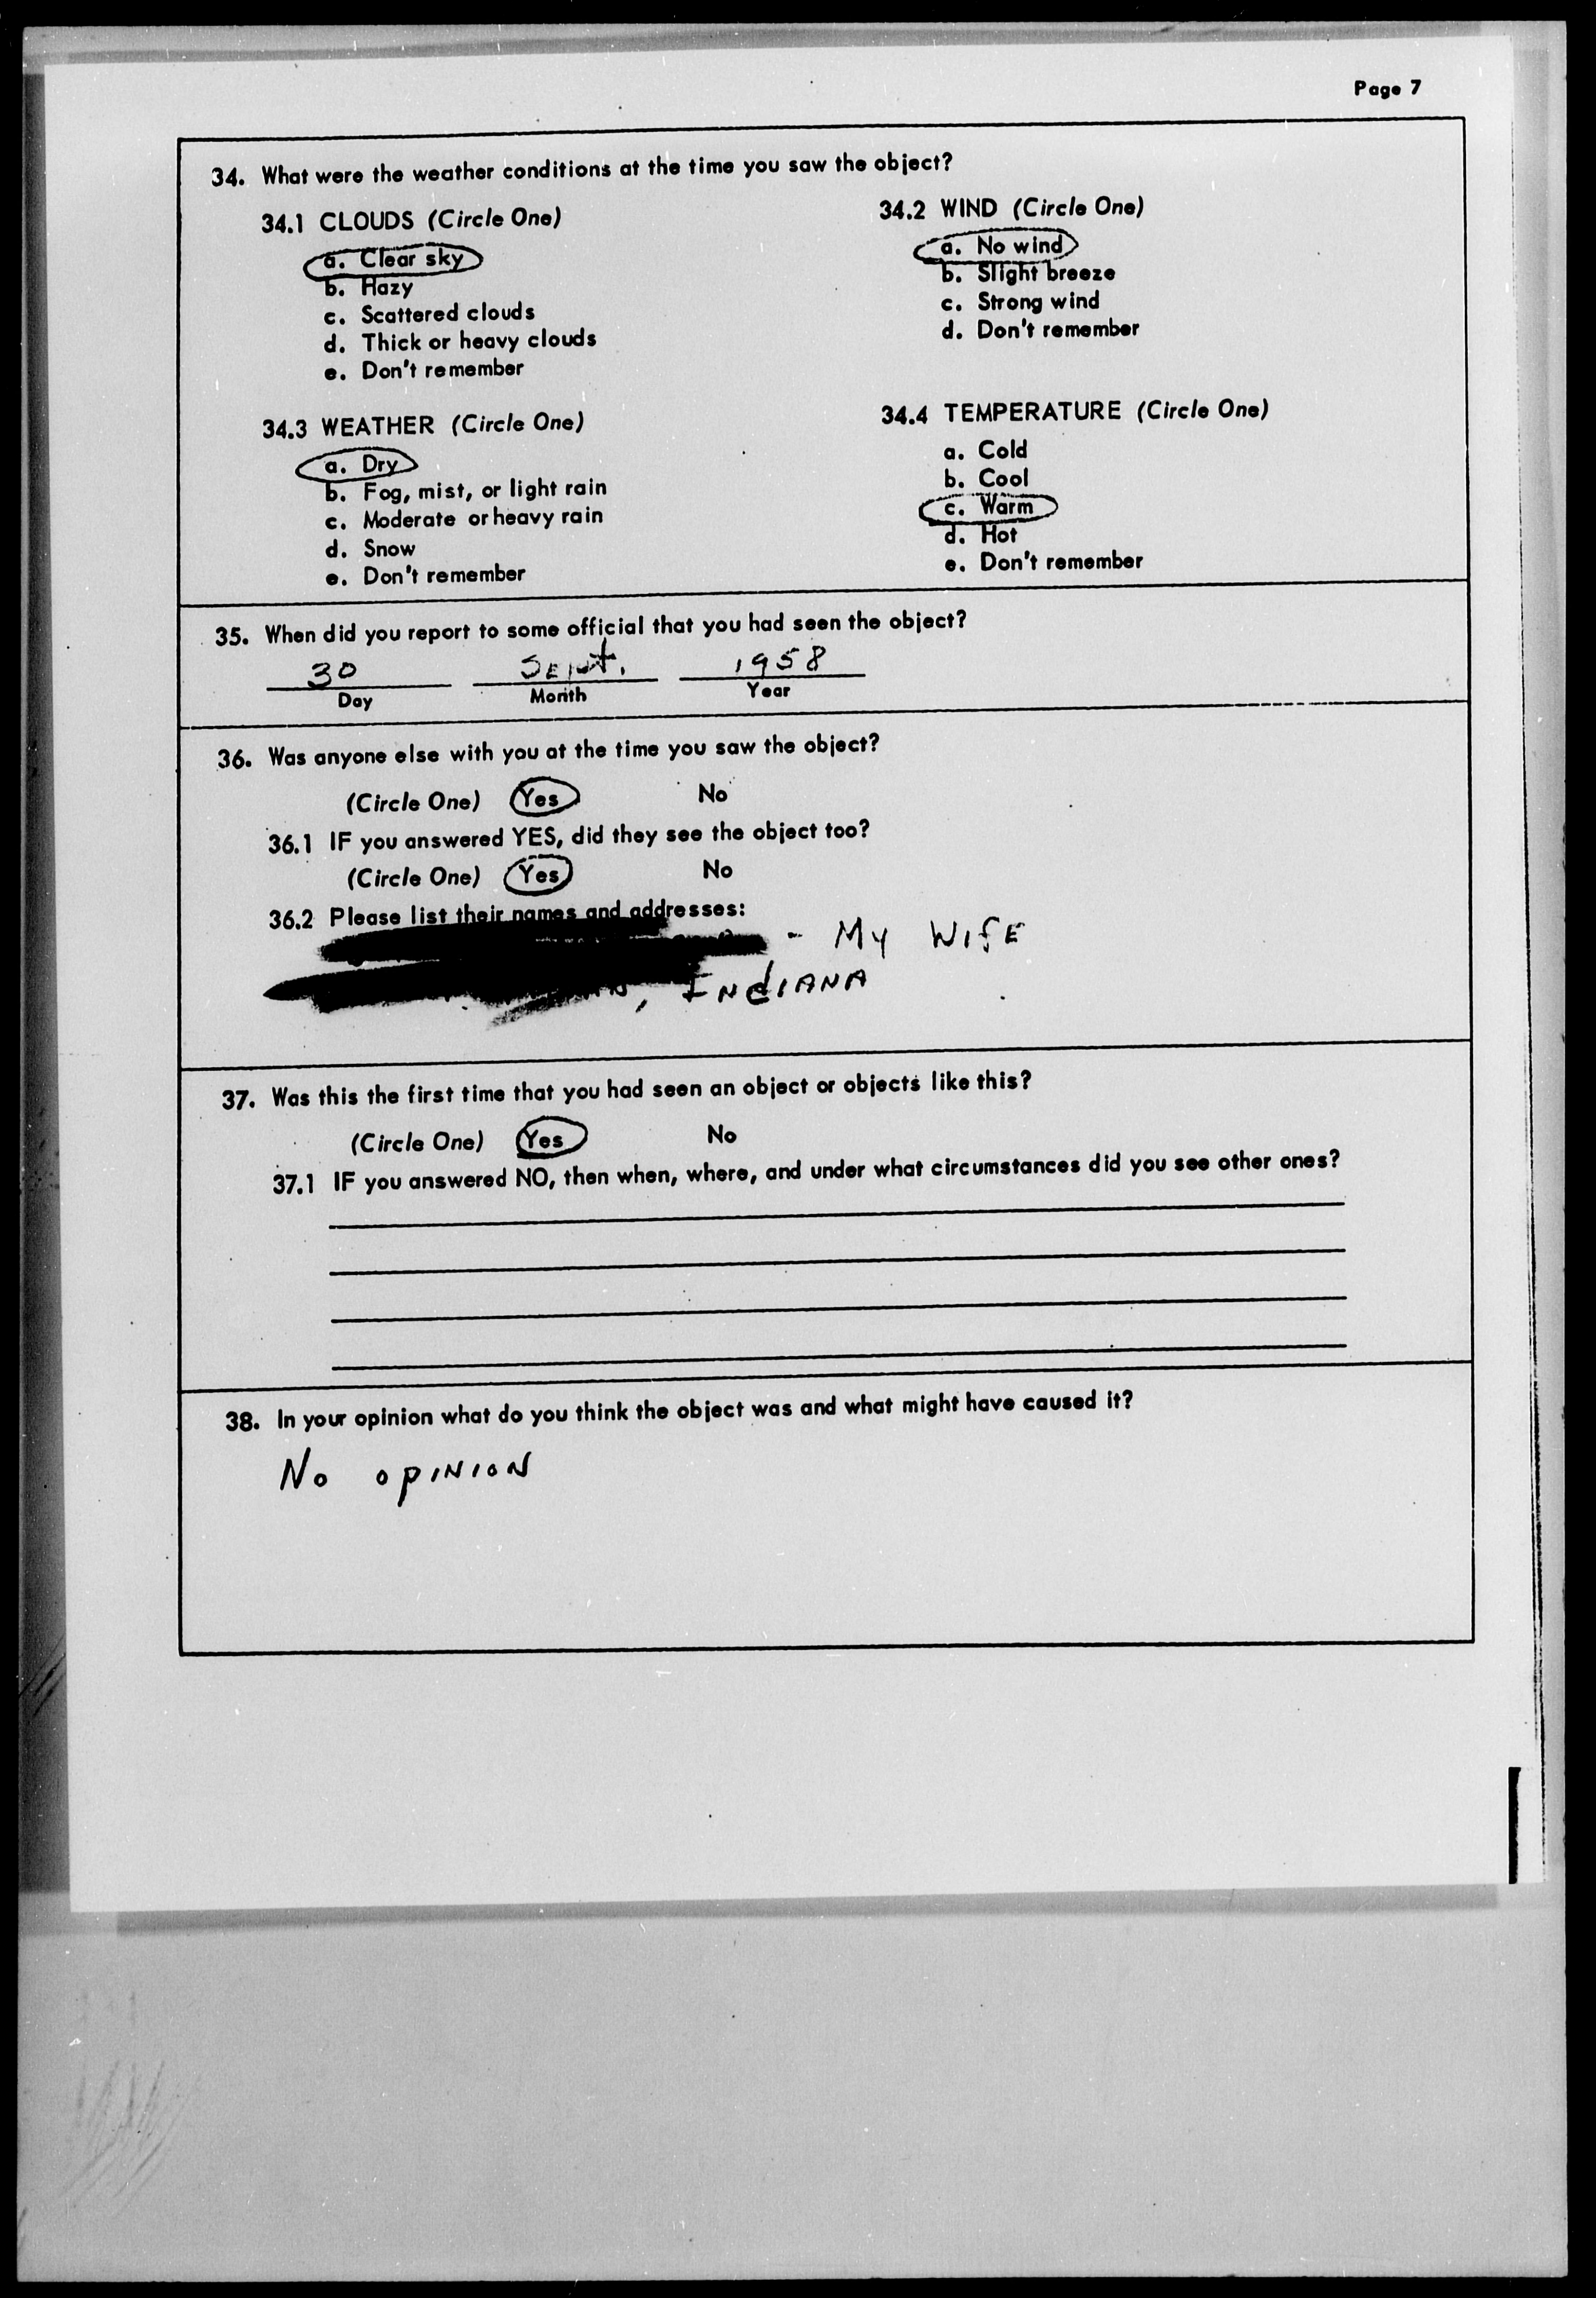 Page 7
34. What were the weather conditions at the time you saw the object?
34.1 CLOUDS (Circle One)
a. Clear sky
b. Hazy
c. Scattered clouds
d. Thick or heavy clouds
e. Don't remember
34.2 WIND (Circle One)
a. No wind
b. Slight breeze
c. Strong wind
d. Don't remember
34.3 WEATHER (Circle One)
a. Dry
b. Fog, mist, or light rain
c. Moderate or heavy rain
d. Snow
e. Don't remember
34.4 TEMPERATURE (Circle One)
a. Cold
b. Cool
c. Warm
d. Hot
e. Don't remember
35. When did you report to some official that you had seen the object?
30 Sept. 1958
Day Month Year
36. Was anyone else with you at the time you saw the object?
(Circle One) Yes No
36.1 IF you answered YES, did they see the object too?
(Circle One) Yes No
36.2 Please list their names and addresses:
- My Wife
, Indiana
37. Was this the first time that you had seen an object or objects like this?
(Circle One) Yes No
37.1 IF you answered NO, then when, where, and under what circumstances did you see other ones?
38. In your opinion what do you think the object was and what might have caused it?
No opinion